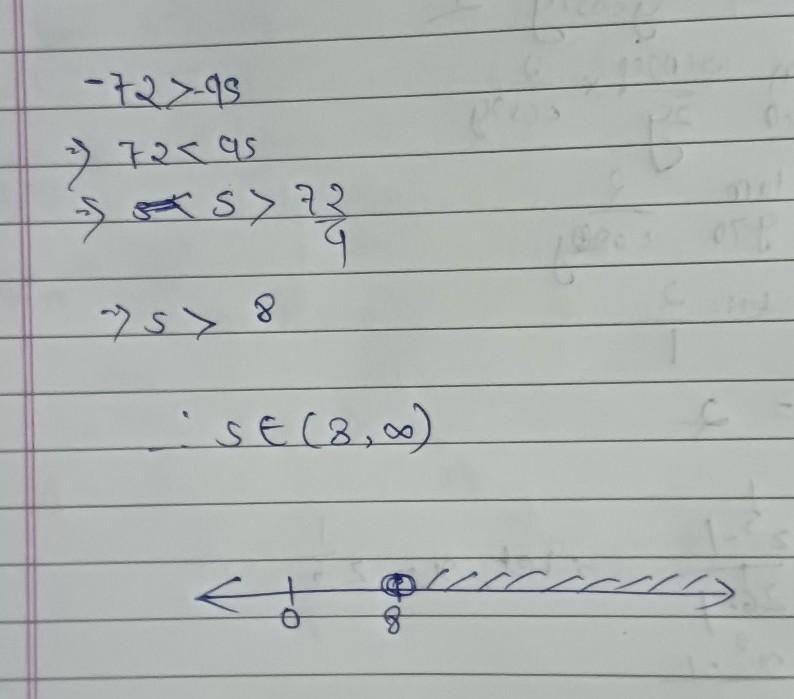 -72>-9s
⇒ 72< 9s
⇒ s > 72/9
⇒ s > 8
∴ s ∈ (8, ∞)
0 8